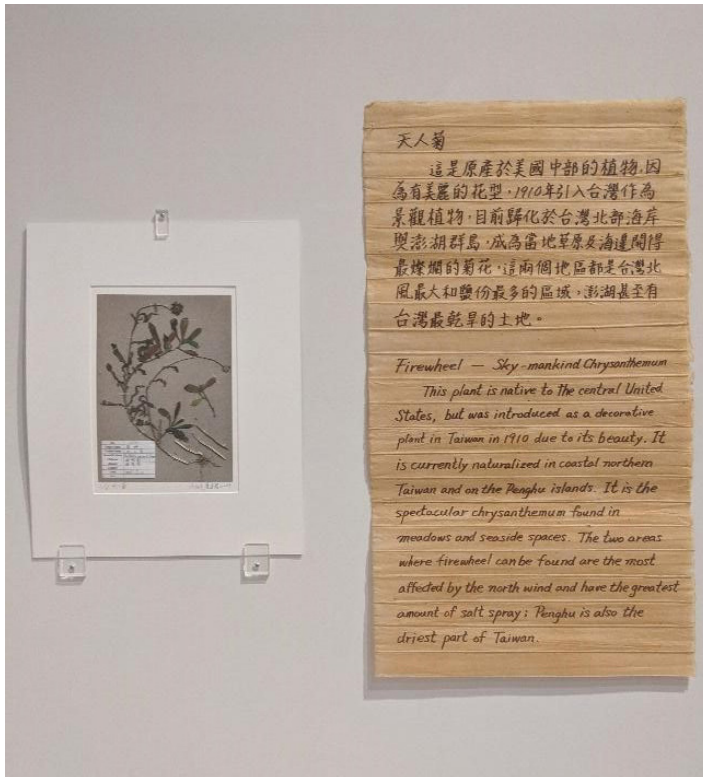 天人菊
這是原產於美國中部的植物,因
為有美麗的花型,1910年引入台灣作為
景觀植物,目前歸化於台灣北部海岸
與澎湖群島,成為當地草原及海邊開得
最燦爛的菊花,這兩個地區都是台灣北
風最大和鹽份最多的區域,澎湖甚至有
台灣最乾旱的土地。
Firewheel — Sky-mankind Chrysanthemum
This plant is native to the central United
States, but was introduced as a decorative
plant in Taiwan in 1910 due to its beauty. It
is currently naturalized in coastal northern
Taiwan and on the Penghu islands. It is the
spectacular chrysanthemum found in
meadows and seaside spaces. The two areas
where firewheel can be found are the most
affected by the north wind and have the greatest
amount of salt spray; Penghu is also the
driest part of Taiwan.